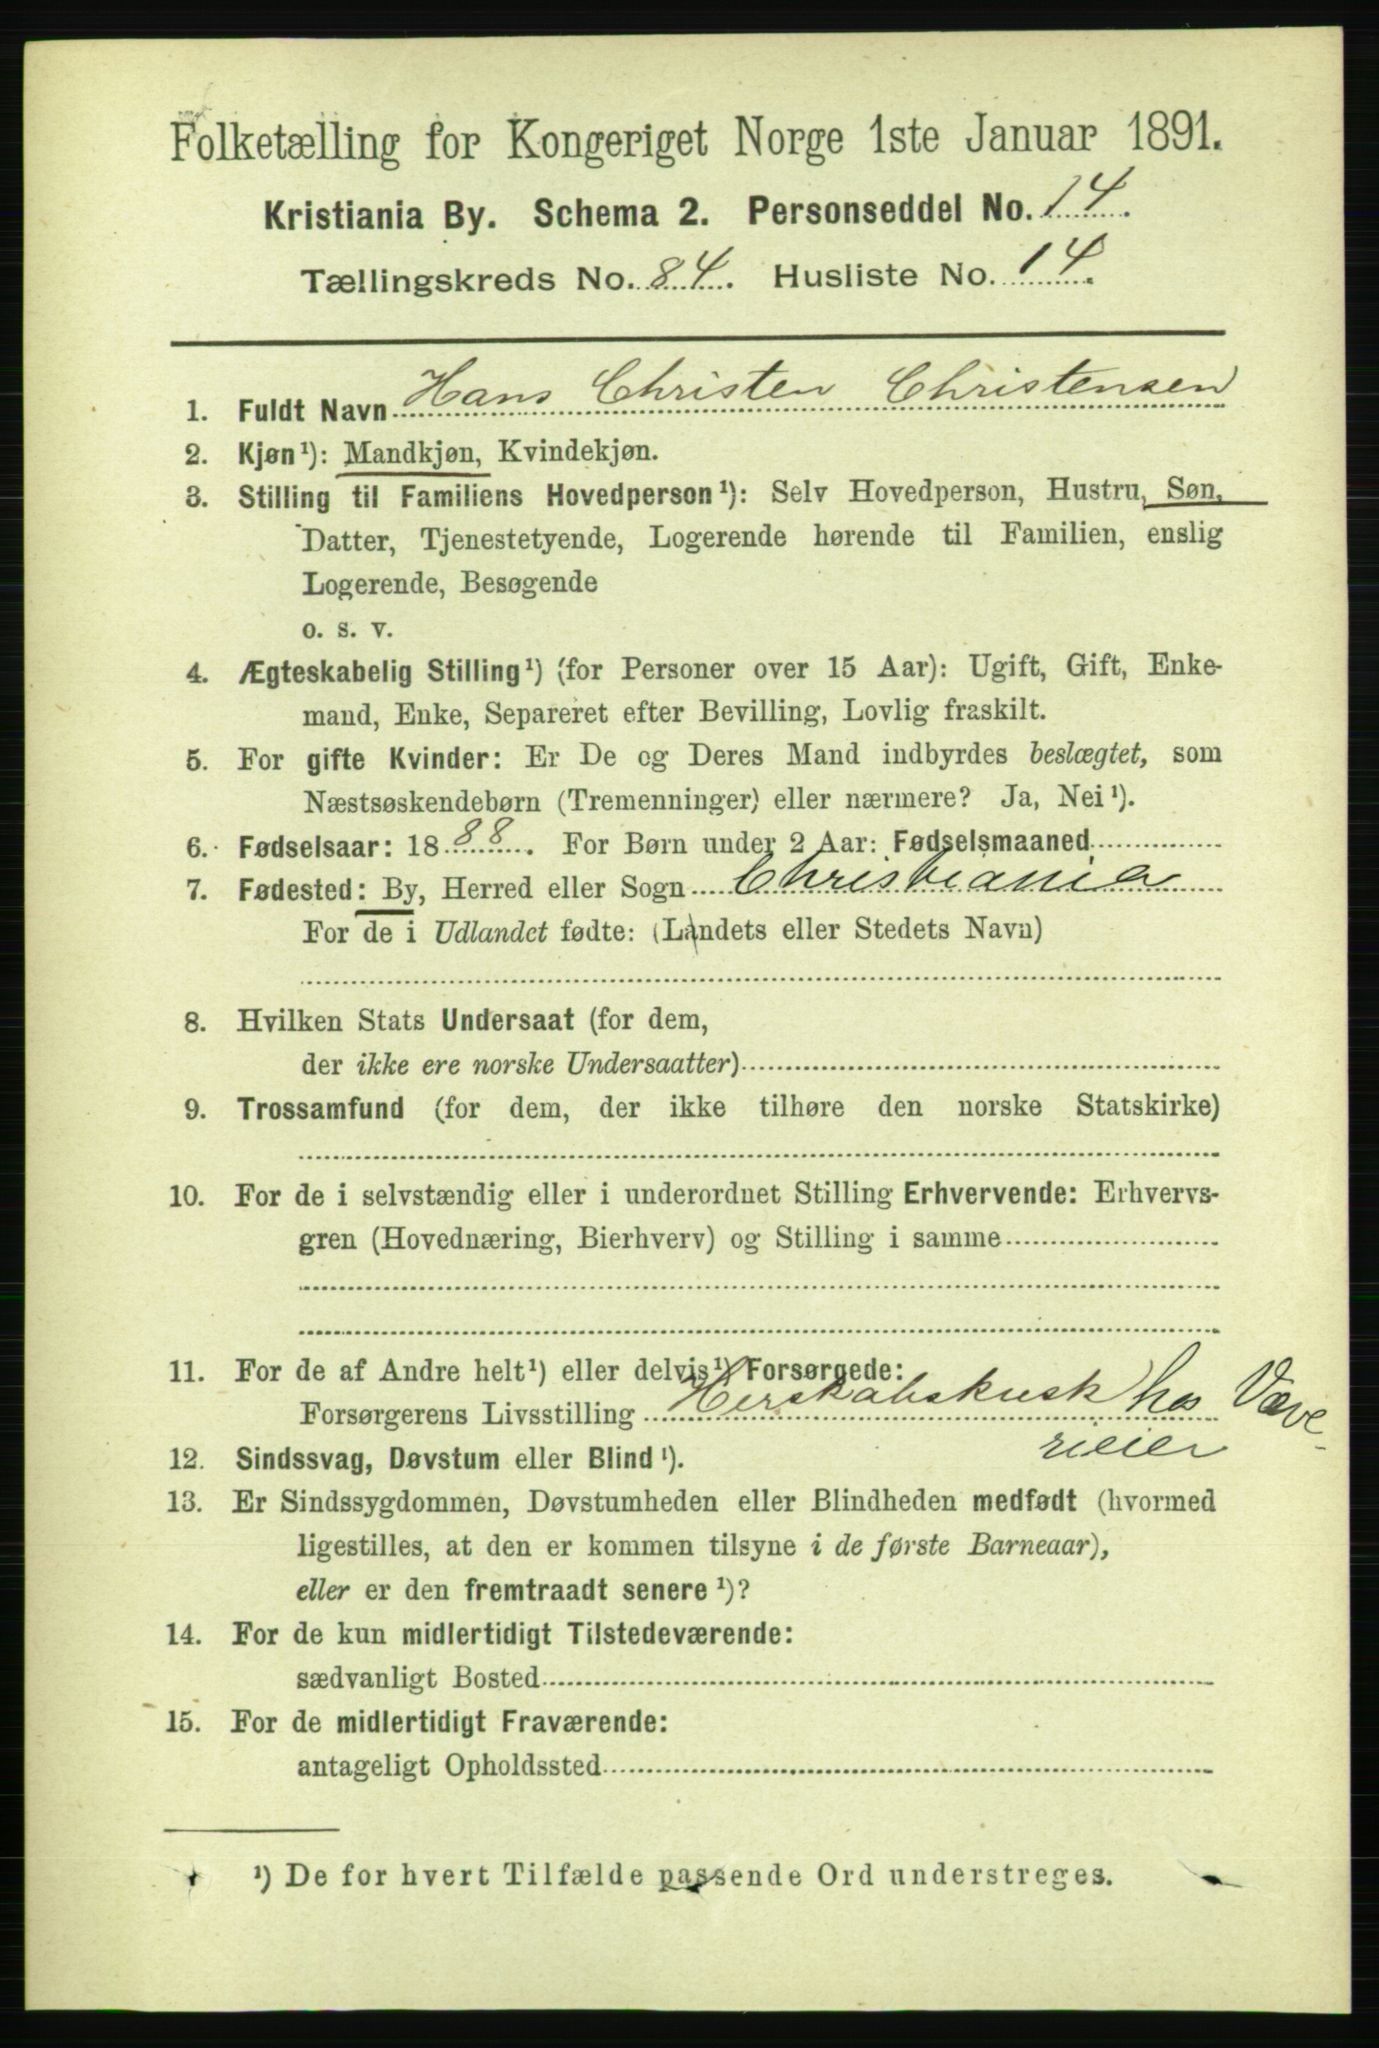 Folketælling for Kongeriget Norge 1ste Januar 1891.
Kristiania By. Schema 2. Personseddel No. 14.
Tællingskreds No. 84. Husliste No. 14.
1. Fuldt Navn Hans Christen Christensen
2. Kjøn¹): Mandkjøn, Kvindekjøn.
3. Stilling til Familiens Hovedperson¹): Selv Hovedperson, Hustru, Søn,
Datter, Tjenestetyende, Logerende hørende til Familien, enslig
Logerende, Besøgende
o. s. v.
4. Ægteskabelig Stilling¹) (for Personer over 15 Aar): Ugift, Gift, Enke-
mand, Enke, Separeret efter Bevilling, Lovlig fraskilt.
5. For gifte Kvinder: Er De og Deres Mand indbyrdes beslægtet, som
Næstsøskendebørn (Tremenninger) eller nærmere? Ja, Nei¹).
6. Fødselsaar: 1888. For Børn under 2 Aar: Fødselsmaaned
7. Fødested: By, Herred eller Sogn Christiania
For de i Udlandet fødte: (Landets eller Stedets Navn)
8. Hvilken Stats Undersaat (for dem,
der ikke ere norske Undersaatter)
9. Trossamfund (for dem, der ikke tilhøre den norske Statskirke)
10. For de i selvstændig eller i underordnet Stilling Erhvervende: Erhvervs-
gren (Hovednæring, Bierhverv) og Stilling i samme
11. For de af Andre helt¹) eller delvis¹) Forsørgede:
Forsørgerens Livsstilling Herskabskusk hos Væve-
rieier
12. Sindssvag, Døvstum eller Blind¹).
13. Er Sindssygdommen, Døvstumheden eller Blindheden medfødt (hvormed
ligestilles, at den er kommen tilsyne i de første Barneaar),
eller er den fremtraadt senere¹)?
14. For de kun midlertidigt Tilstedeværende:
sædvanligt Bosted
15. For de midlertidigt Fraværende:
antageligt Opholdssted
¹) De for hvert Tilfælde passende Ord understreges.